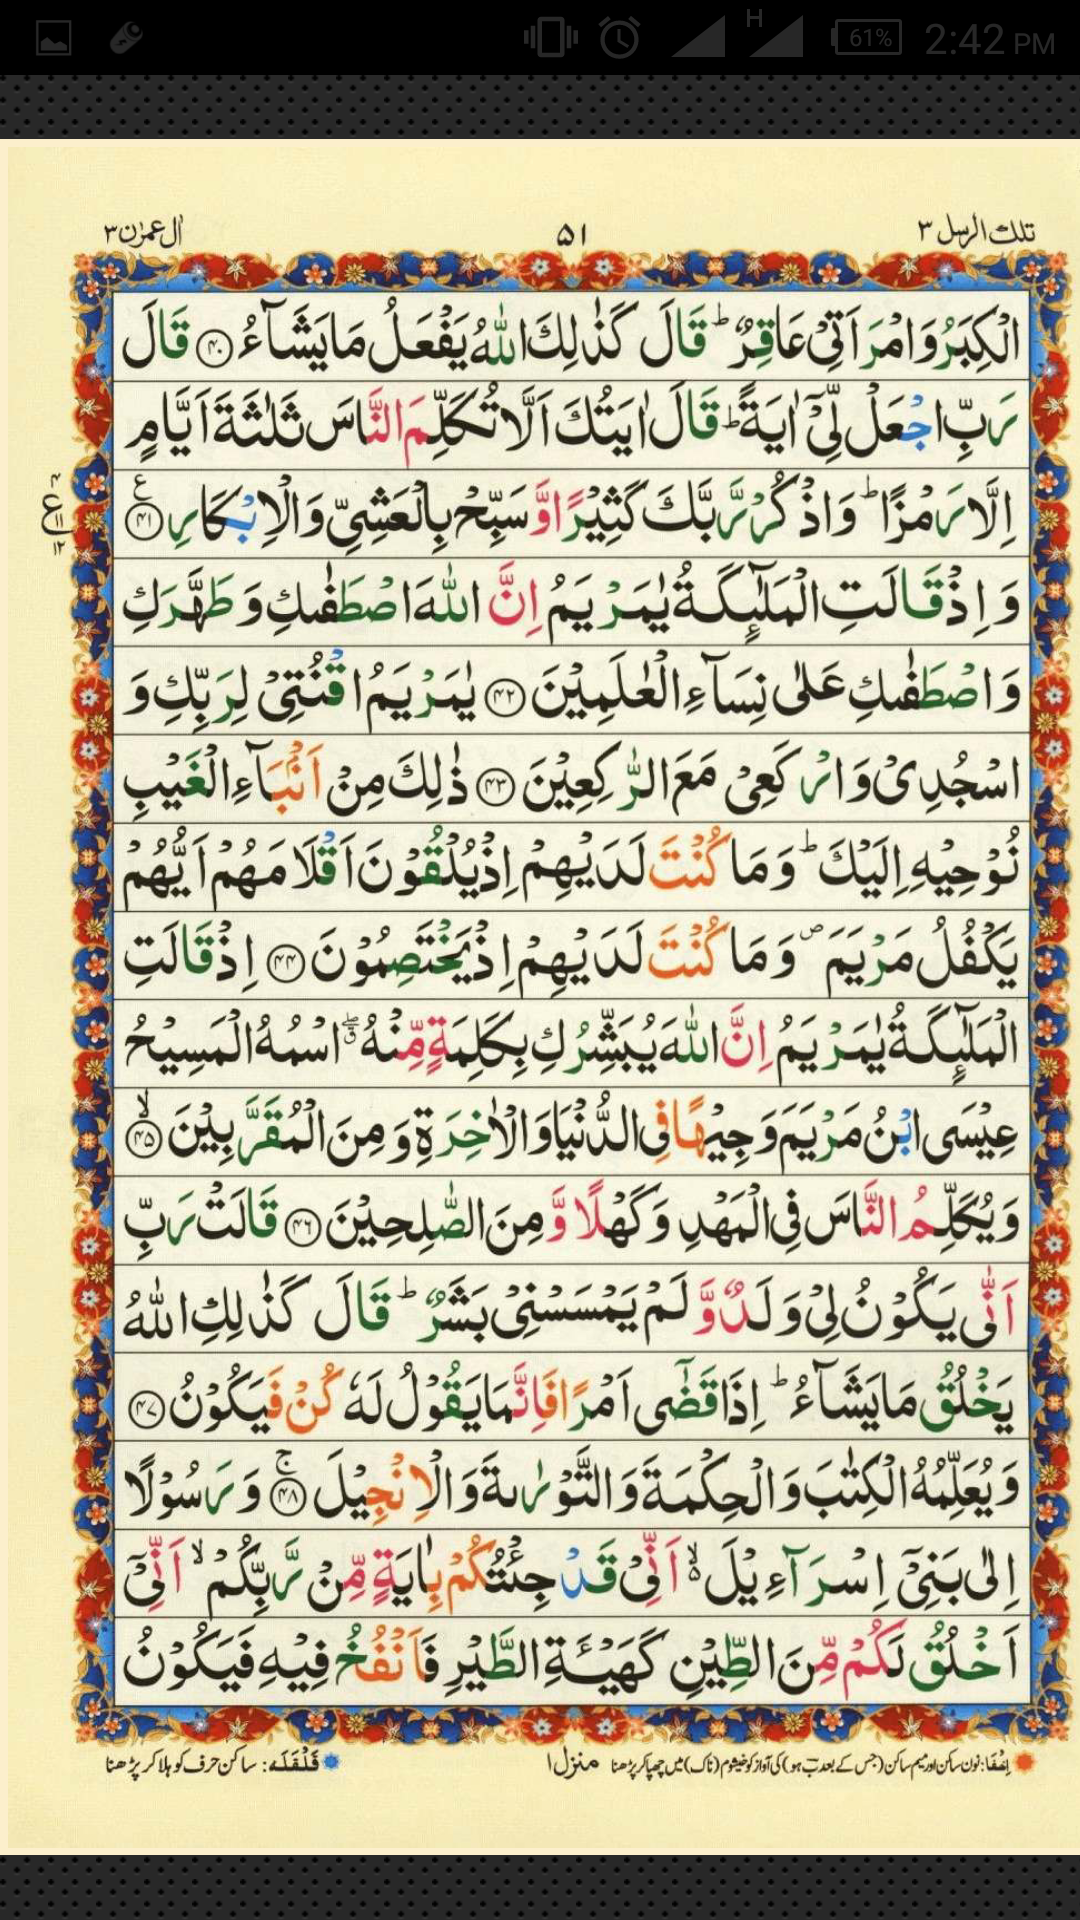 H 61% 2:42 PM
تلك الرسل ٣ ٥١ اٰل عمرٰن ٣
الْكِبَرُ وَامْرَاَتِیْ عَاقِرٌ ؕ قَالَ كَذٰلِكَ اللّٰهُ یَفْعَلُ مَا یَشَآءُ ﴿۴۰﴾ قَالَ
رَبِّ اجْعَلْ لِّیْۤ اٰیَةً ؕ قَالَ اٰیَتُكَ اَلَّا تُكَلِّمَ النَّاسَ ثَلٰثَةَ اَیَّامٍ
اِلَّا رَمْزًا ؕ وَاذْكُرْ رَّبَّكَ كَثِیْرًا وَّ سَبِّحْ بِالْعَشِیِّ وَالْاِبْكَارِ ﴿۴۱﴾ ع
ع ١١ ١٢
وَ اِذْ قَالَتِ الْمَلٰٓىِٕكَةُ یٰمَرْیَمُ اِنَّ اللّٰهَ اصْطَفٰىكِ وَ طَهَّرَكِ
وَ اصْطَفٰىكِ عَلٰی نِسَآءِ الْعٰلَمِیْنَ ﴿۴۲﴾ یٰمَرْیَمُ اقْنُتِیْ لِرَبِّكِ وَ
اسْجُدِیْ وَ ارْكَعِیْ مَعَ الرّٰكِعِیْنَ ﴿۴۳﴾ ذٰلِكَ مِنْ اَنْۢبَآءِ الْغَیْبِ
نُوْحِیْهِ اِلَیْكَ ؕ وَ مَا كُنْتَ لَدَیْهِمْ اِذْ یُلْقُوْنَ اَقْلَامَهُمْ اَیُّهُمْ
یَكْفُلُ مَرْیَمَ ۪ وَ مَا كُنْتَ لَدَیْهِمْ اِذْ یَخْتَصِمُوْنَ ﴿۴۴﴾ اِذْ قَالَتِ
الْمَلٰٓىِٕكَةُ یٰمَرْیَمُ اِنَّ اللّٰهَ یُبَشِّرُكِ بِكَلِمَةٍ مِّنْهُ ۖۗ اسْمُهُ الْمَسِیْحُ
عِیْسَی ابْنُ مَرْیَمَ وَجِیْهًا فِی الدُّنْیَا وَالْاٰخِرَةِ وَ مِنَ الْمُقَرَّبِیْنَ ﴿۴۵﴾ۙ
وَ یُكَلِّمُ النَّاسَ فِی الْمَهْدِ وَ كَهْلًا وَّ مِنَ الصّٰلِحِیْنَ ﴿۴۶﴾ قَالَتْ رَبِّ
اَنّٰی یَكُوْنُ لِیْ وَلَدٌ وَّ لَمْ یَمْسَسْنِیْ بَشَرٌ ؕ قَالَ كَذٰلِكِ اللّٰهُ
یَخْلُقُ مَا یَشَآءُ ؕ اِذَا قَضٰۤی اَمْرًا فَاِنَّمَا یَقُوْلُ لَهٗ كُنْ فَیَكُوْنُ ﴿۴۷﴾
وَ یُعَلِّمُهُ الْكِتٰبَ وَ الْحِكْمَةَ وَ التَّوْرٰىةَ وَ الْاِنْجِیْلَ ﴿۴۸﴾ۚ وَ رَسُوْلًا
اِلٰی بَنِیْۤ اِسْرَآءِیْلَ ۙ۬ اَنِّیْ قَدْ جِئْتُكُمْ بِاٰیَةٍ مِّنْ رَّبِّكُمْ ۙ اَنِّیْۤ
اَخْلُقُ لَكُمْ مِّنَ الطِّیْنِ كَهَیْـَٔةِ الطَّیْرِ فَاَنْفُخُ فِیْهِ فَیَكُوْنُ
اِخْفَا: نون ساکن اور میم ساکن (جس کے بعد بؔ ہو) کی آواز کو خیشوم (ناک) میں چھپا کر پڑھنا منزل ١ قَلْقَلَه: ساکن حرف کو ہلا کر پڑھنا